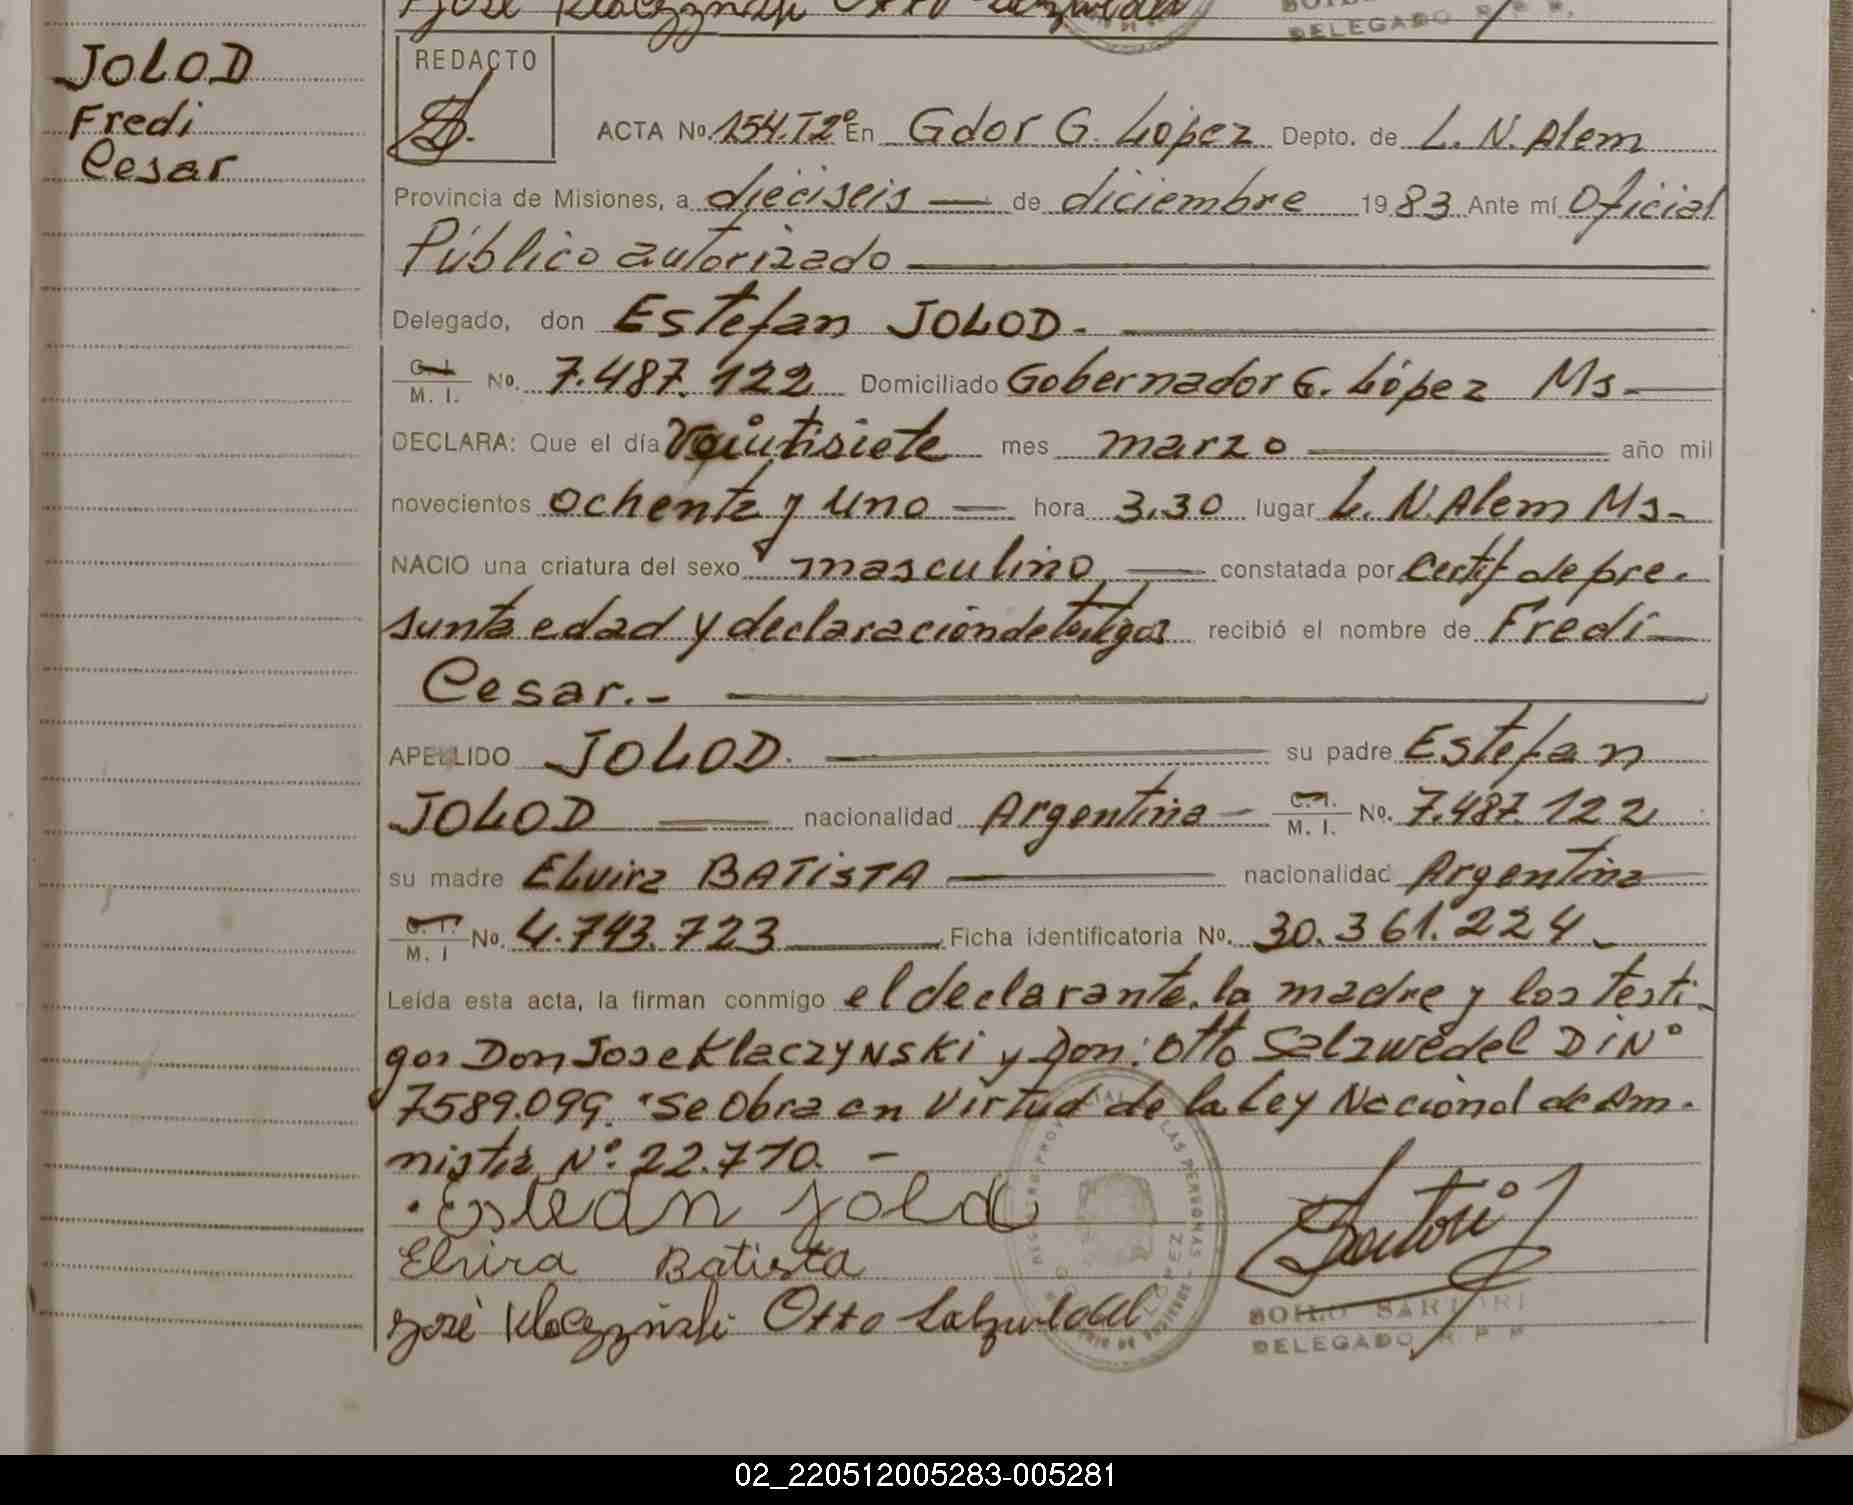 José Klaczynski Otto Salzwedel
DELEGADO R. P. P.
JOLOD
Fredi
Cesar
REDACTO
ACTA No. 154.T2º En Gdor G. López Depto. de L. N. Alem
Provincia de Misiones, a dieciseis — de diciembre 1983 Ante mí Oficial
Público autorizado
Delegado, don Estefan JOLOD.
C. I.
M. I. No. 7.487.122 Domiciliado Gobernador G. López Ms.
DECLARA: Que el día Veintisiete mes marzo año mil
novecientos ochenta y uno — hora 3.30 lugar L. N. Alem Ms.
NACIO una criatura del sexo masculino — constatada por Certif de pre-
sunta edad y declaracion de testigos recibió el nombre de Fredi
Cesar.-
APELLIDO JOLOD. su padre Estefan
JOLOD nacionalidad Argentina C. I.
M. I. No. 7.487.122
su madre Elvira BATISTA nacionalidad Argentina
C. I.
M. I No. 4.743.723 Ficha identificatoria No. 30.361.224
Leída esta acta, la firman conmigo el declarante, la madre y los testi-
gos Don Jose Klaczynski y Don: Otto Salzwedel DiNº
7589.099. "Se Obra en Virtud de la Ley Nacional de Am-
nistia Nº. 22.770. -
Estean Jold
Elvira Batista
José Klaczynski Otto Salzwedel
SARTORI
DELEGADO R P P
02_220512005283-005281